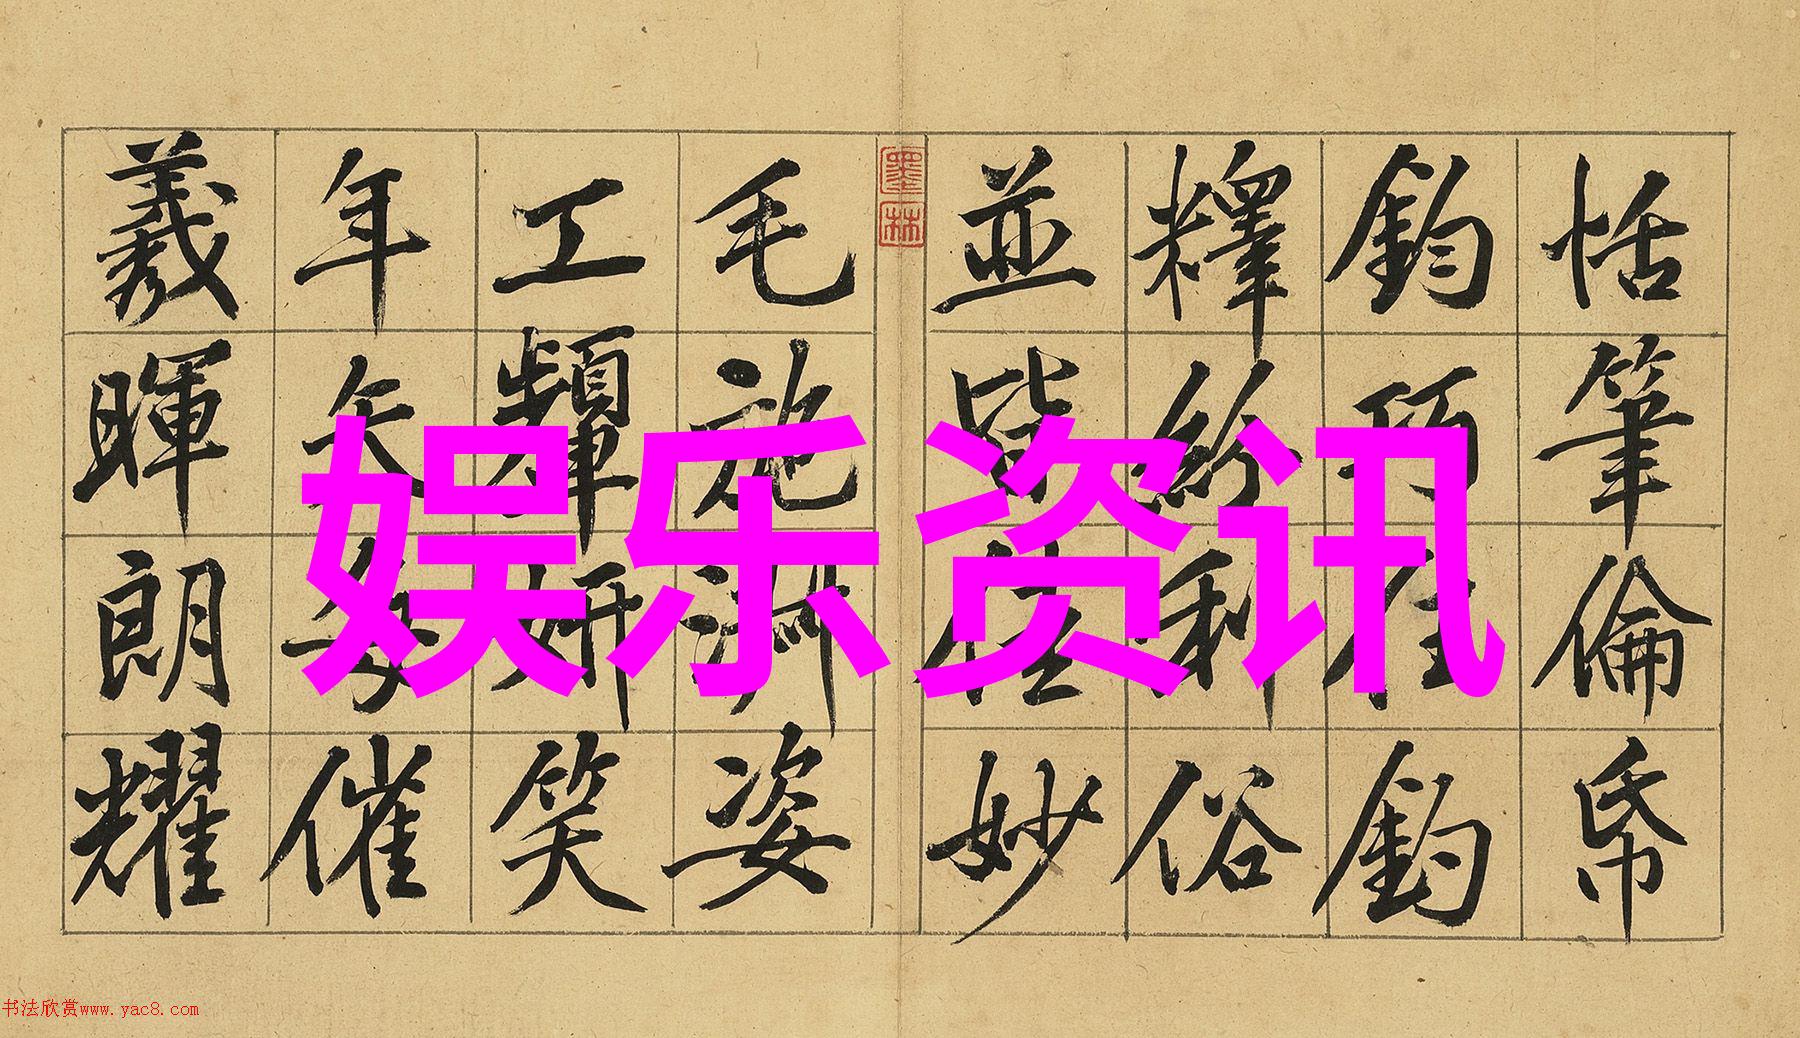 恬筆倫帋
鈞巧任釣
釋紛利俗
並皆佳妙
毛施淑姿
工顰妍笑
年矢每催
羲暉朗耀
墨林
娱乐资讯
书法欣赏www.yac8.com